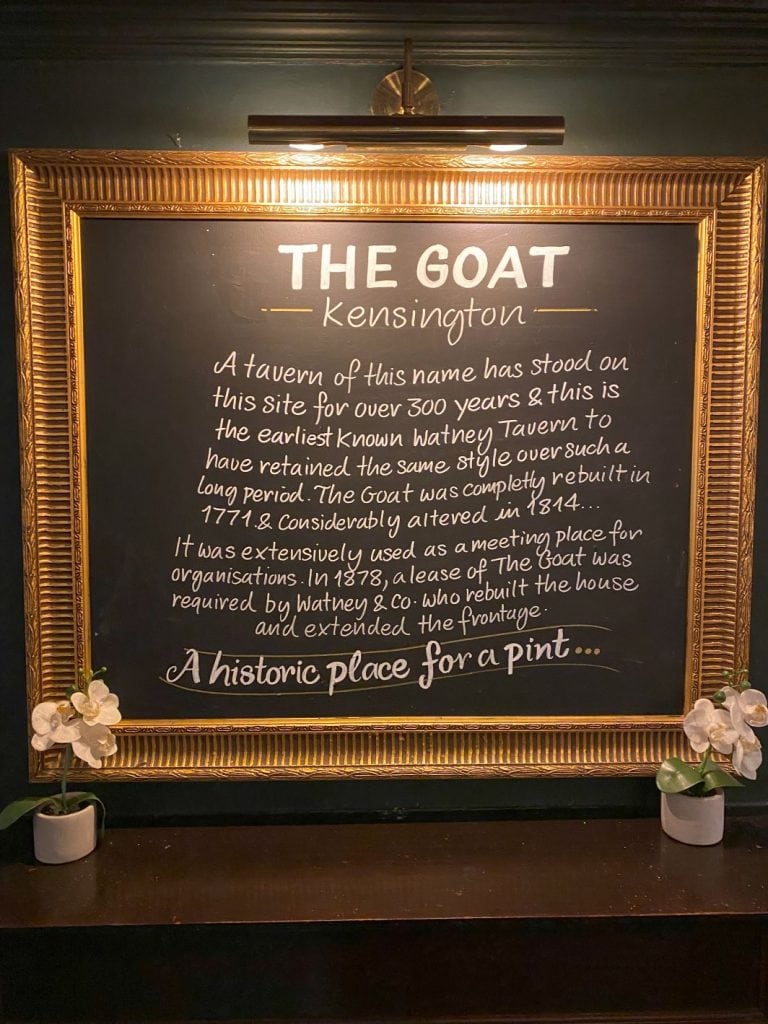 THE GOAT
Kensington
A tavern of this name has stood on
this site for over 300 years & this is
the earliest known Watney Tavern to
have retained the same style over such a
long period. The Goat was completly rebuilt in
1771 & Considerably altered in 1814...
It was extensively used as a meeting place for
organisations. In 1878, a lease of The Goat was
required by Watney & Co. who rebuilt the house
and extended the frontage.
A historic place for a pint...